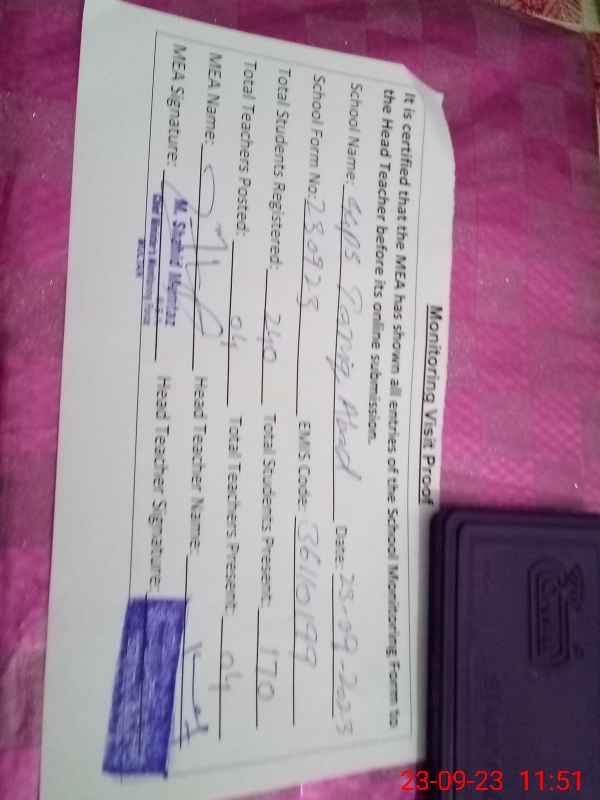 Monitoring Visit Proof
It is certified that the MEA has shown all entries of the School Monitoring Form to
the Head Teacher before its online submission.
School Name: Abad Date: 23-09-2023
School Form No: 230923 EMIS Code: 36110199
Total Students Registered: 240 Total Students Present: 170
Total Teachers Posted: 04 Total Teachers Present: 04
MEA Name: Head Teacher Name:
MEA Signature: Head Teacher Signature:
M. Shahid Mumtaz
23-09-23 11:51